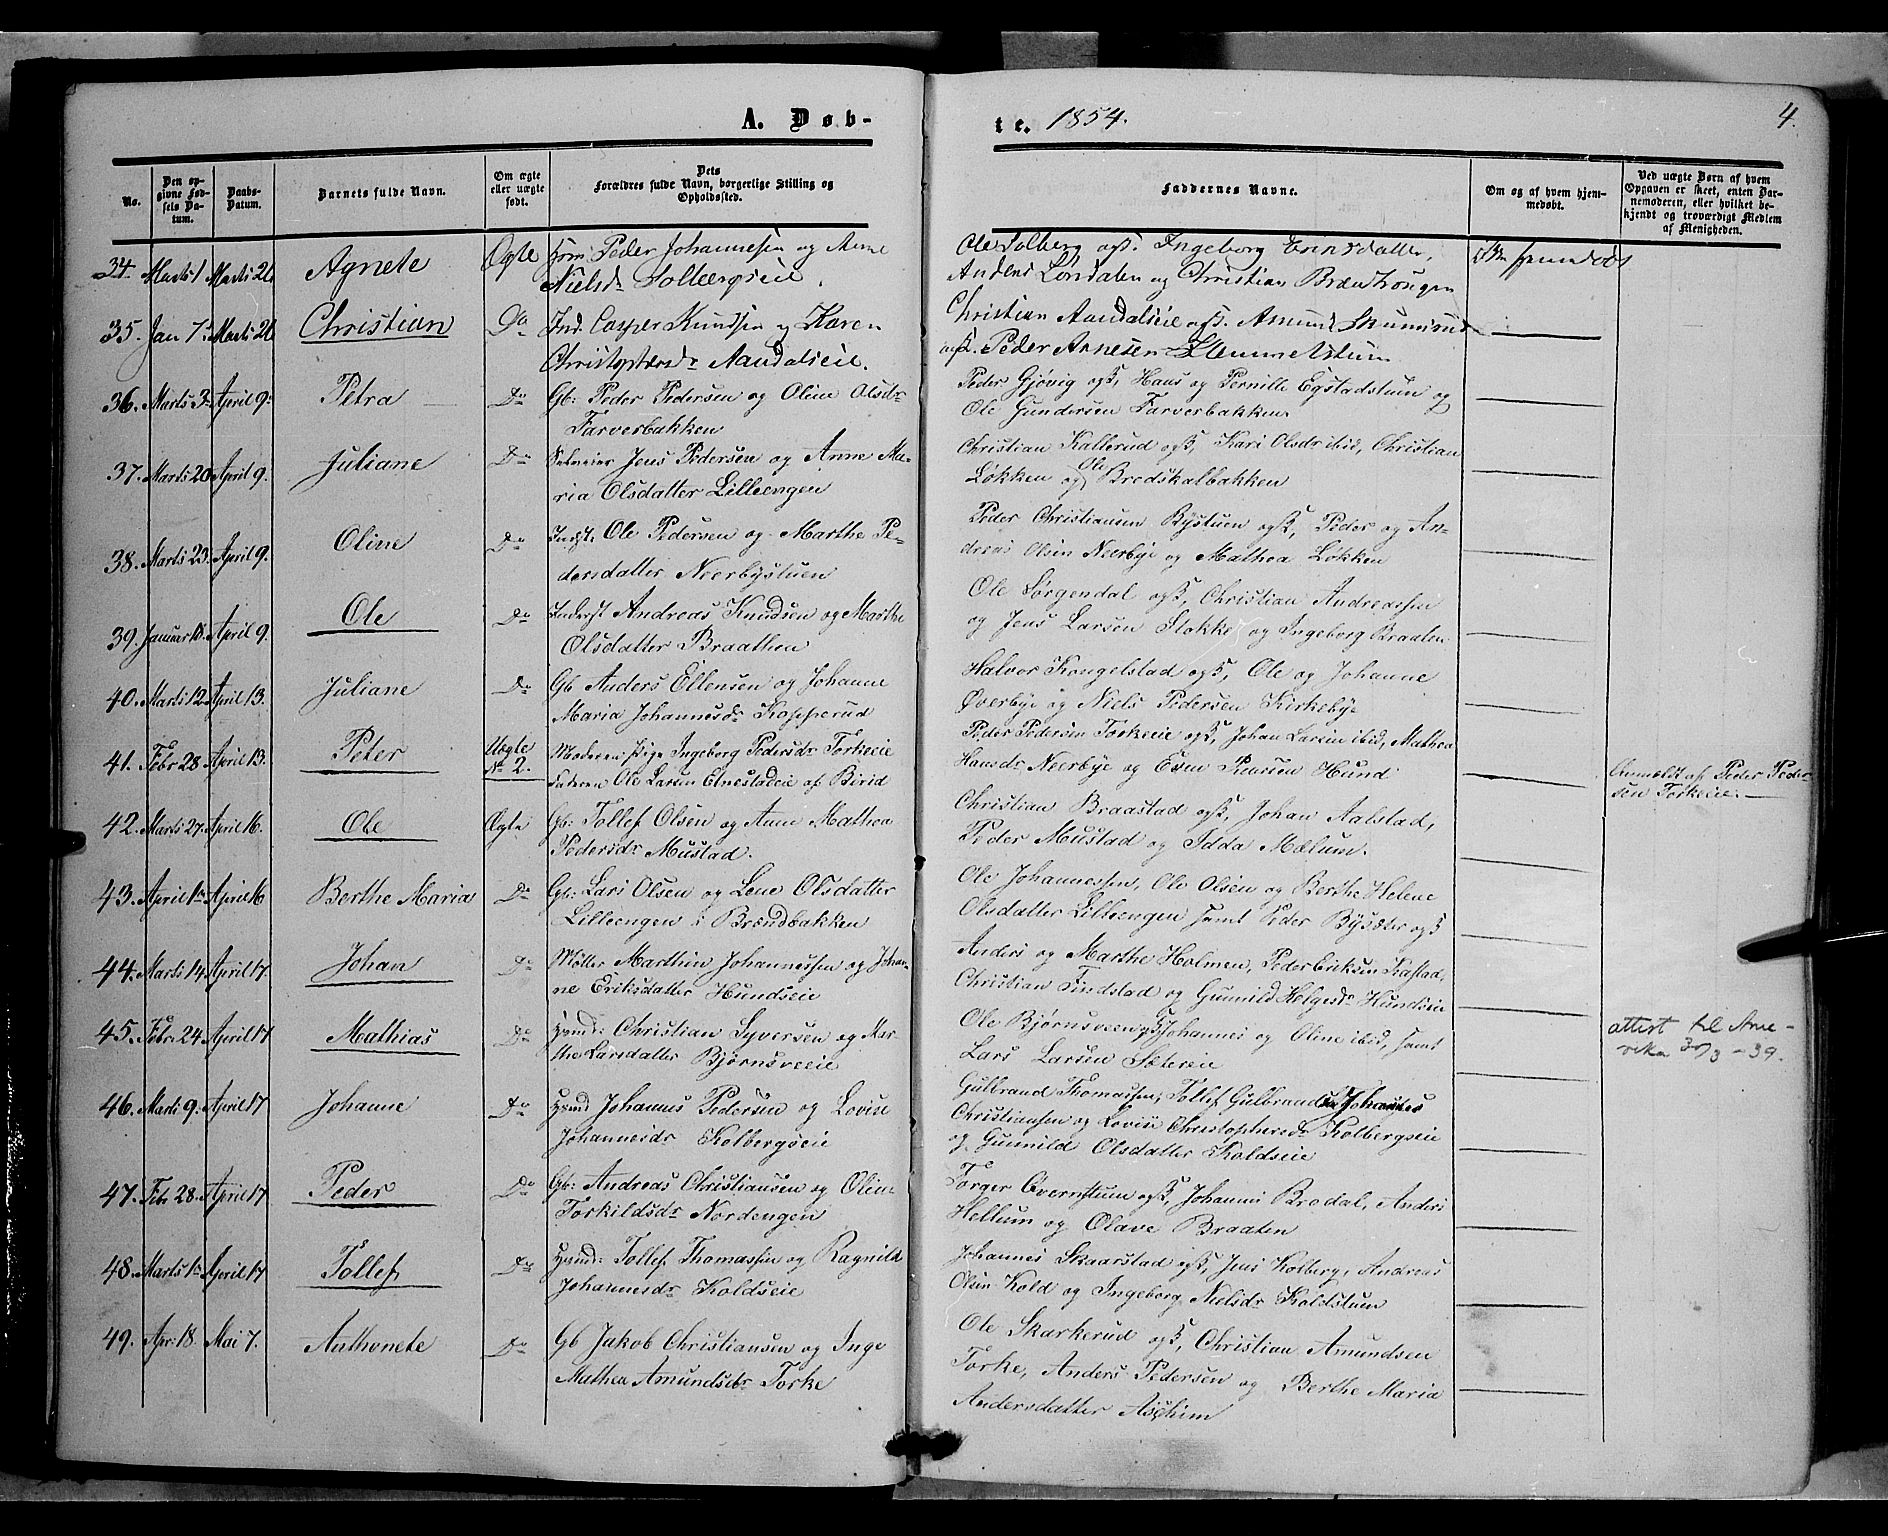 A. Døb-
te. 1854.
4.
No.
Den op-
givne Fød-
sels Da-
tum.
Daabs-
Datum.
Barnets fulde Navn.
Om ægte
eller uægte
født.
Dets
Forældres fulde Navn, borgerlige Stilling og
Opholdssted.
Faddernes Navne.
Om og af hvem hjem-
medøbt.
Ved uægte Børn af hvem
Opgaven er skeet, enten Bar-
nemoderen, eller hvilket be-
kjendt og troværdigt Medlem
af Menigheden.
34. Marts 1 Marts 26 Agnete Ægte Peder Johannesen og Anne
Nielsdr Solbergseie
Ole Solberg ogs. Ingeborg
Anders Løndalen og Christian
35. Jan 7 Marts 26 Christian Do Ind. Casper Knudsen og Karen
Christophersdr Aandalseie.
Christian Aandalseie ogs. Amund
Peder Annesen
36. Marts 3 April 9 Petra Do Gb: Peder Pedersen og Oline Olsdr
Farverbakken
Peder Gjøvig ogs, Hans og Pernille Egstadstuen og
Ole Gundersen Farverbakken
37. Marts 20 April 9. Juliane Do Jens Pedersen og Anne Ma-
ria Olsdatter Lilleengen
Christian Kallerud ogs, Kari Olsdr ibid, Christian
Løkken og Ole Bredskalbakken
38. Marts 23. April 9. Oline Do Indst. Ole Pedersen og Marthe Pe-
dersdatter Neerbystuen
Peder Christiansen Bystuen ogs, Peder og An-
dreas Olsen Neerbye og Mathea Løkken
39. Januar April 9. Ole Do Inderst Andreas Knudsen og Marthe
Olsdatter Braathen
Ole Sørgendal ogs, Christian Andreassen
og Jens Larsen Stokke og Ingeborg Braaten
40. Marts 12 April 13. Juliane Do Gb Anders Ellensen og Johanne
Maria Johannesdr Kopperud
Halvor Kongelstad ogs, Ole og Johanne
Øverbye og Niels Pedersen Kirkebye
41. Febr 28 April 13. Peter Uægte
No 2. Moderen: Pige Ingeborg Pedersdr Torkeeie
Faderen Ole Larsen af Birid
Peder Pedersen Torkeeie ogs, Johan Larsen ibid, Mathea
Hansdr Neerbye og Even Hund
Anmeldt af Peder Peder-
sen Torkeeie.
42. Marts 27. April 16. Ole Ægte Gb: Tollef Olsen og Anne Mathea
Pedersdr Mustad.
Christian Braastad ogs, Johan Aalstad,
Peder Mustad og Idda Mælum.
43. April 1 April 16 Berthe Maria Do Gb: Lars Olsen og Lene Olsdatter
Lilleengen i Brændbakken
Ole Johannessen, Ole Olsen og Berthe Helene
Olsdatter Lilleengen samt Peder Bysæter ogs
44. Marts 14 April 17 Johan Do Møller Marthin Johannessen og Johan-
ne Eriksdatter Hundseie
Anders og Marthe Holmen, Peder Eriksen Kastad,
Christian Findstad og Gunnild Helgesdr Hundseie
45. Febr 24 April 17 Mathias Do Christian Syversen og Mar-
the Larsdatter Bjørnsveeie
Ole Bjørnsveen ogs Johannes og Oline ibid, samt
Lars Larsen Sætereie
attest til Ame-
rika 30/3 - 39.
46. Marts 9. April 17 Johanne Do Johannes Pedersen og Lovise
Johannesdr Kolbergseie
Gulbrand Thomassen, Tollef Gulbrandsen, Johannes
Christiansen og Lovise Christophersdr Kolbergseie
og Gunnild Olsdatter Koldseie
47. Febr 28. April 17 Peder Do Gb: Andreas Christiansen og Oline
Torkildsdr Nordengen
Torger ogs, Johannes Bradal, Anders
Hellum og Olave Braaten
48. Marts 1 April 17 Tollef Do Tollef Thomassen og Ragnild
Johannesdr Koldseie
Johannes Skaarstad ogs, Jens Kolberg, Andreas
Olsen Kold og Ingeborg Nielsdr Koldstuen
49. Apr: 18. Mai 7. Anthonete Do Gb Jakob Christiansen og Inge
Mathea Amundsdr Torke
Ole Skarkerud ogs, Christian Amundsen
Torke, Anders Pedersen og Berthe Maria
Andersdatter Aschim